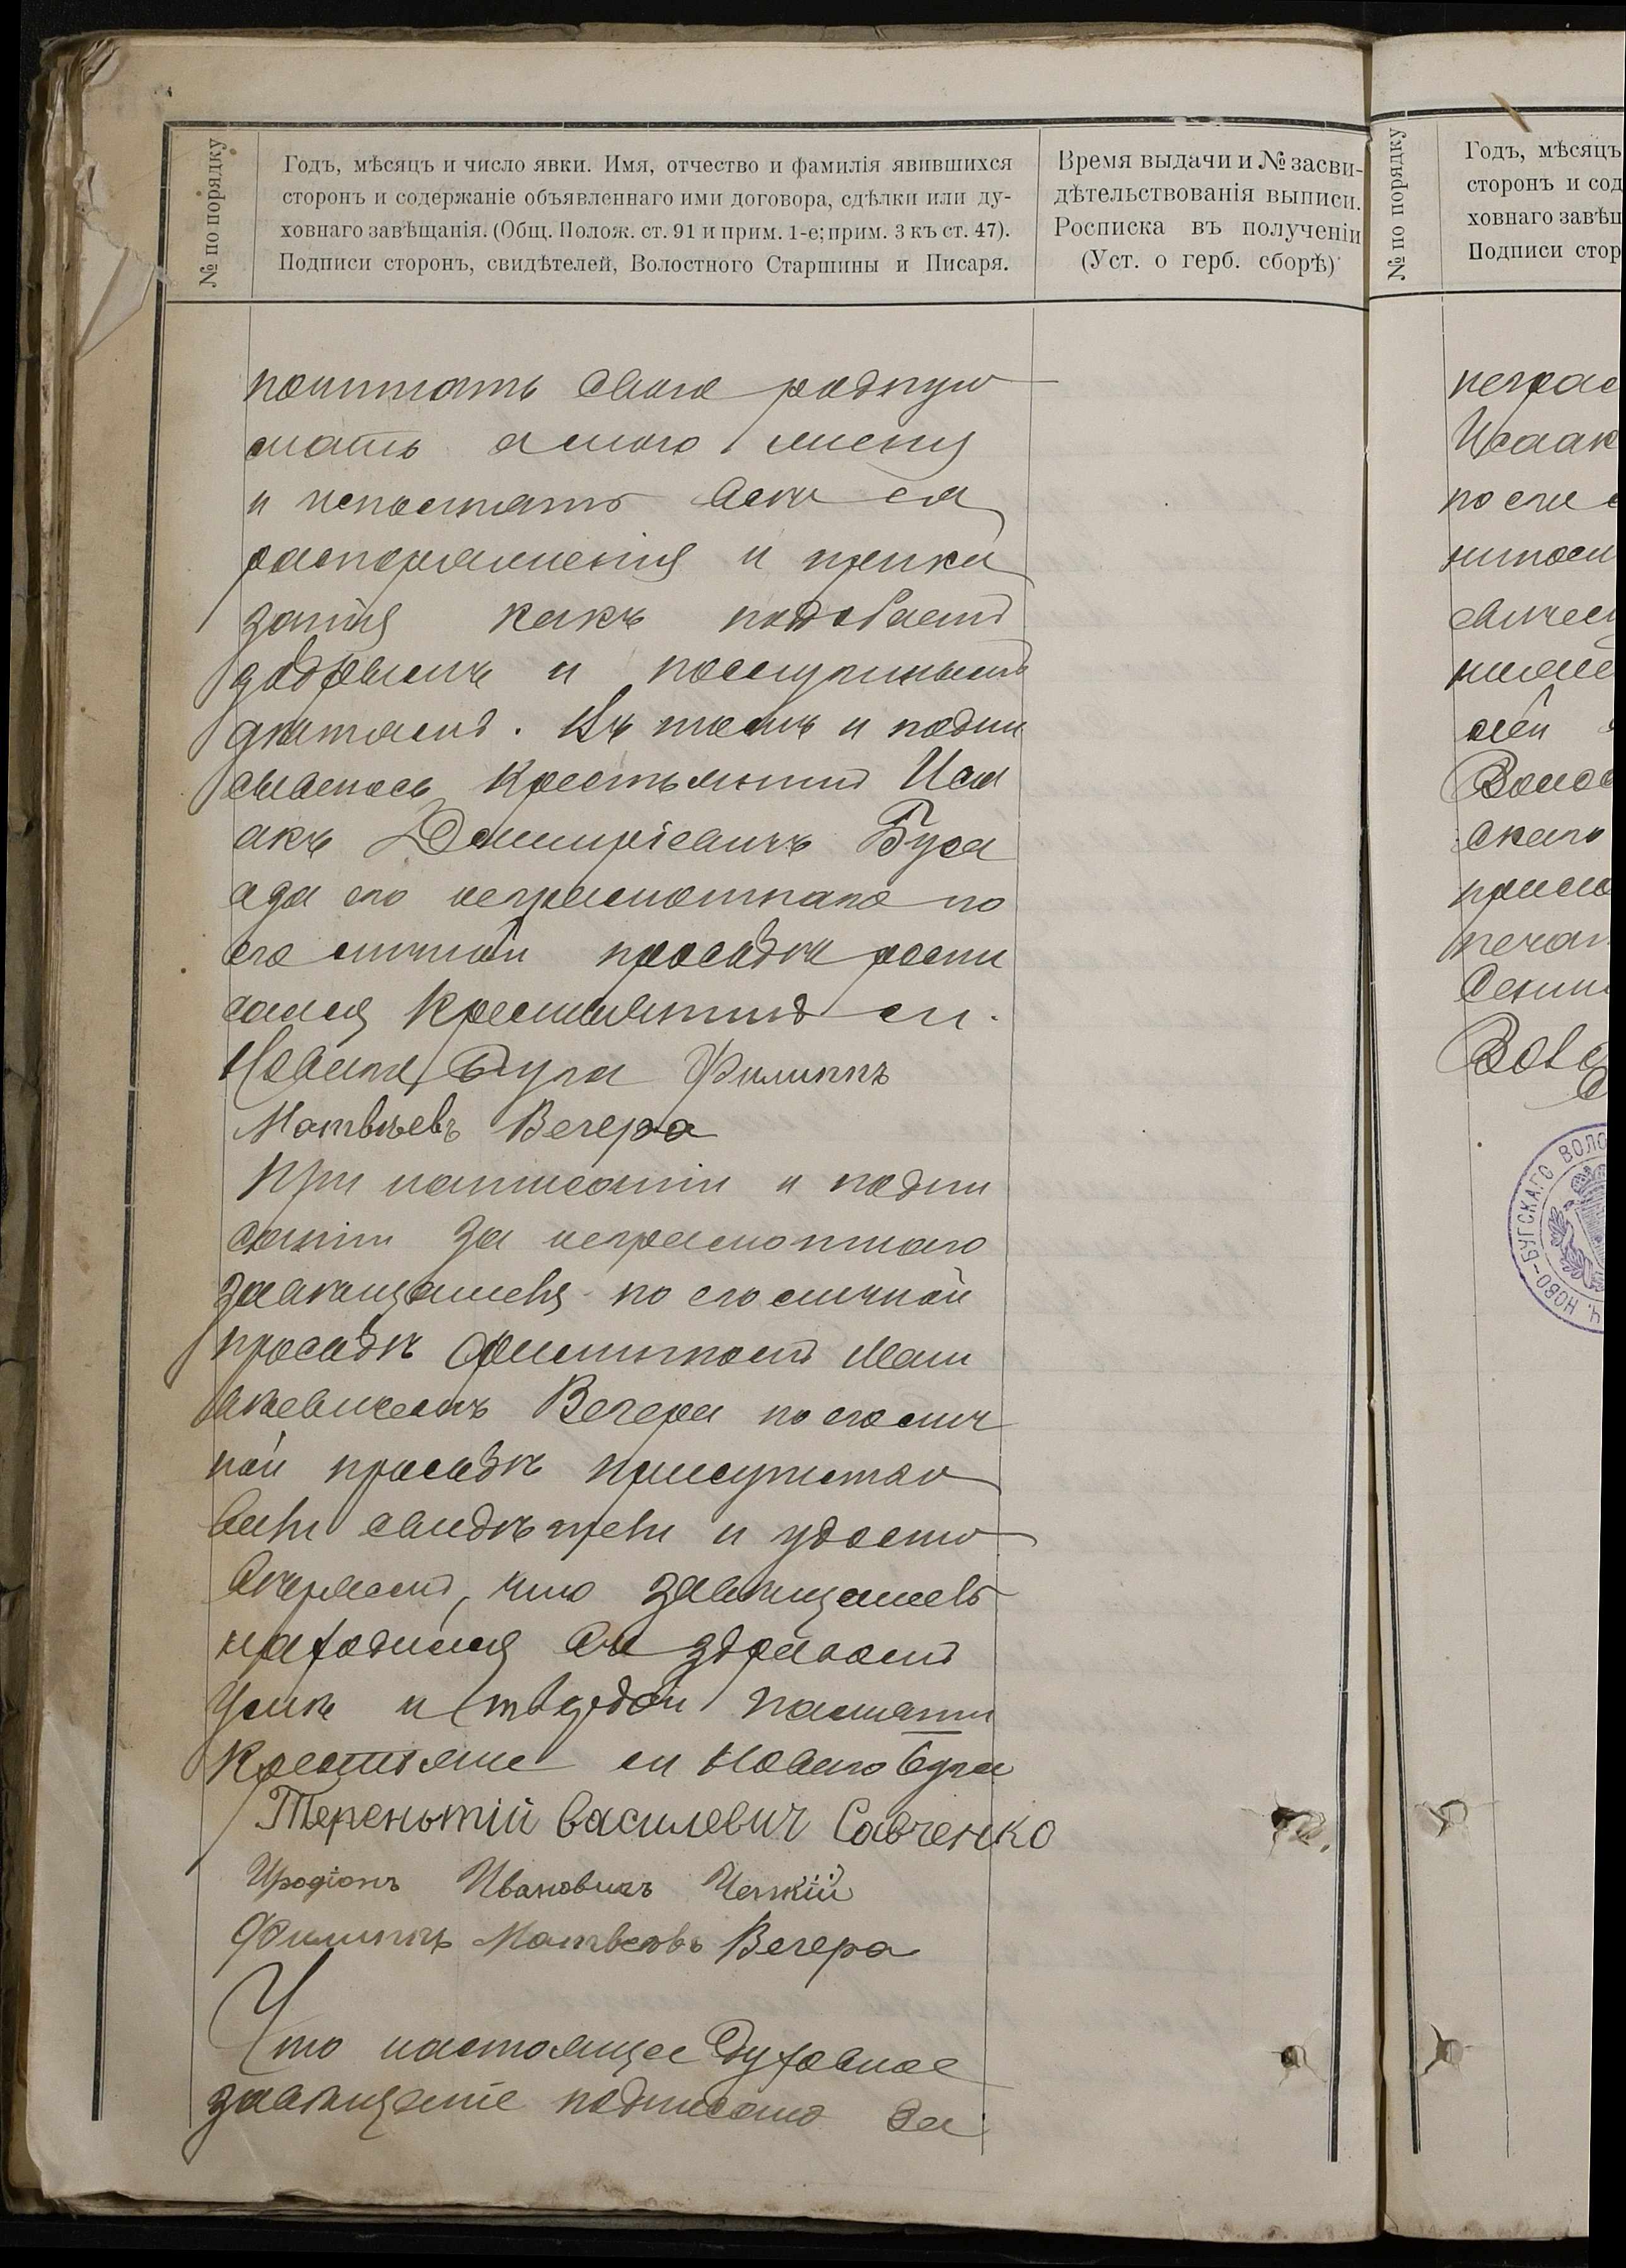 № по порядку
Годъ, мѣсяцъ и число явки. Имя, отчество и фамилія явившихся
сторонъ и содержаніе объявленнаго ими договора, сдѣлки или ду-
ховнаго завѣщанія. (Общ. Полож. ст. 91 и прим. 1-е; прим. 3 къ ст. 47).
Подписи сторонъ, свидѣтелей, Волостного Старшины и Писаря.
Время выдачи и № засви-
дѣтельствованія выписи.
Росписка въ полученіи
(Уст. о герб. сборѣ)
почитать свою родную
мать а мою жену
и исполнять всѣ ея
распоряженія и прика
занія какъ подобаетъ
добрымъ и послушнымъ
дѣтямъ. Въ томъ и подпи
сываюсь крестьянинъ Иса
акъ Дмитріевичъ Буса
а за его неграмотнаго по
его личной просьбѣ роспи
сался крестьянинъ см.
Новаго Буга Филиппъ
Матвѣевъ Вечера
При написаніи и подпи
саніи за неграмотнаго
завѣщателя по его личной
просьбѣ Филиппомъ Мат
вѣевичемъ Вечера по его лич
ной просьбѣ присутство
вали свидѣтели и удосто
вѣряемъ, что завѣщатель
находился въ здравомъ
умѣ и твердой памяти
Крестьяне см Новаго Буга
Тереньтій Василевич Савченко
Иродіонъ Ивановичъ
Филиппъ Матвеевъ Вечера
Что настоящее Духовное
завѣщаніе подписано за
№ по порядку
Годъ, мѣсяцъ
сторонъ и сод
ховнаго завѣщ
Подписи стор
неграм
Исаак
по его
Волос
скаго
печат
НОВО-БУГСКАГО ВОЛО